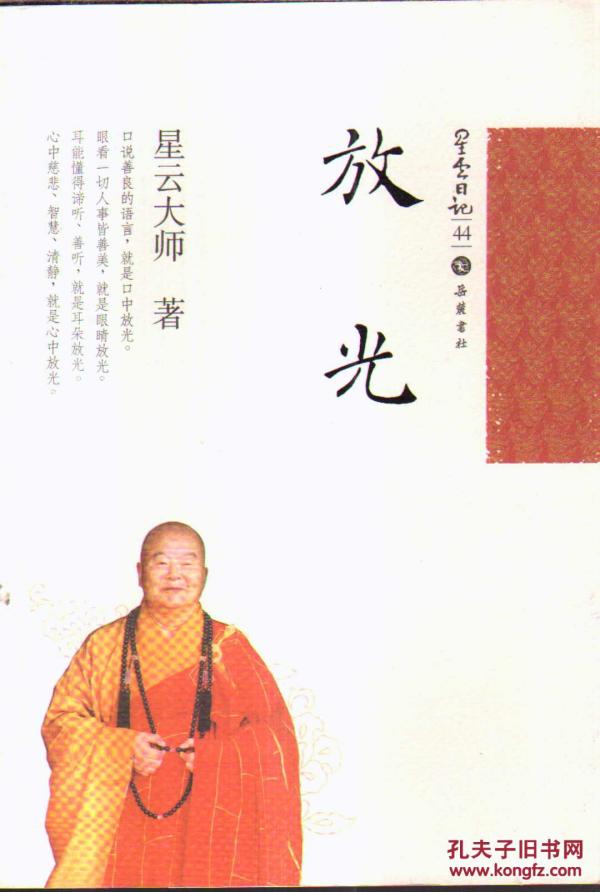 星云日记
44
岳麓书社
放光
星云大师 著
口说善良的语言，就是口中放光。
眼看一切人事皆善美，就是眼睛放光。
耳能懂得谛听、善听，就是耳朵放光。
心中慈悲、智慧、清静，就是心中放光。
孔夫子旧书网
www.kongfz.com